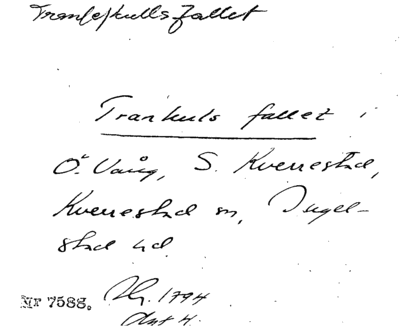 Traneskullsfallet
Trankuls fallet i
Ö. Vång, S. Kverrestad,
Kverrestad sn, Ingel-
stad hd.
Nr 7588. Hg. 1794
Akt 4.